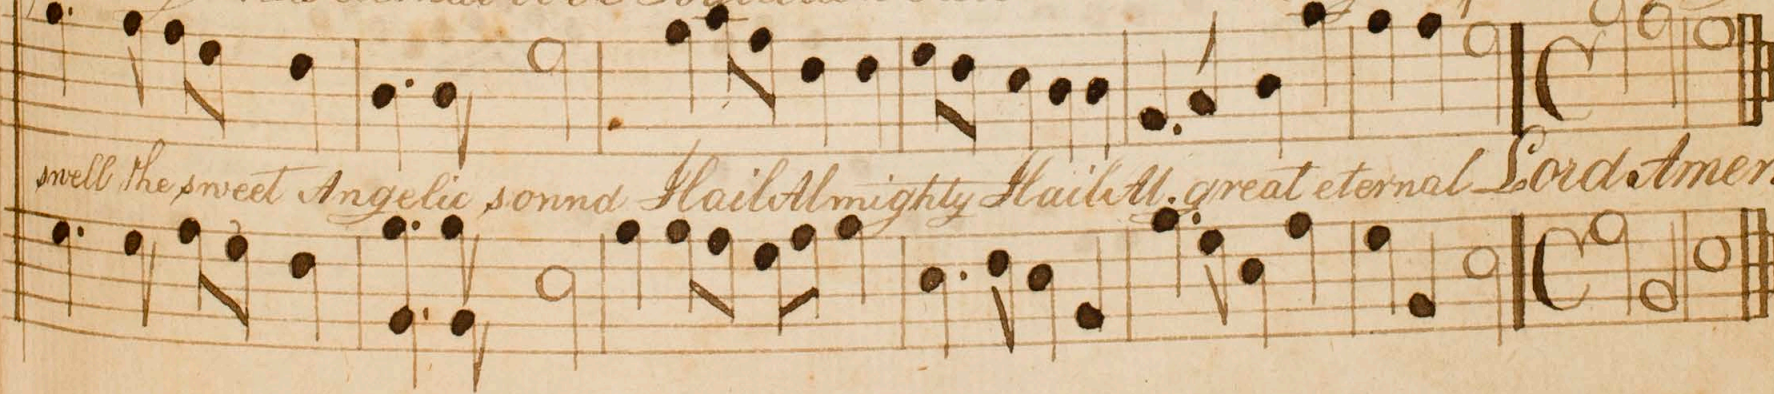 swell the sweet Angelic sonnd Hail Almighty Hail Al. great eternal Lord Amen